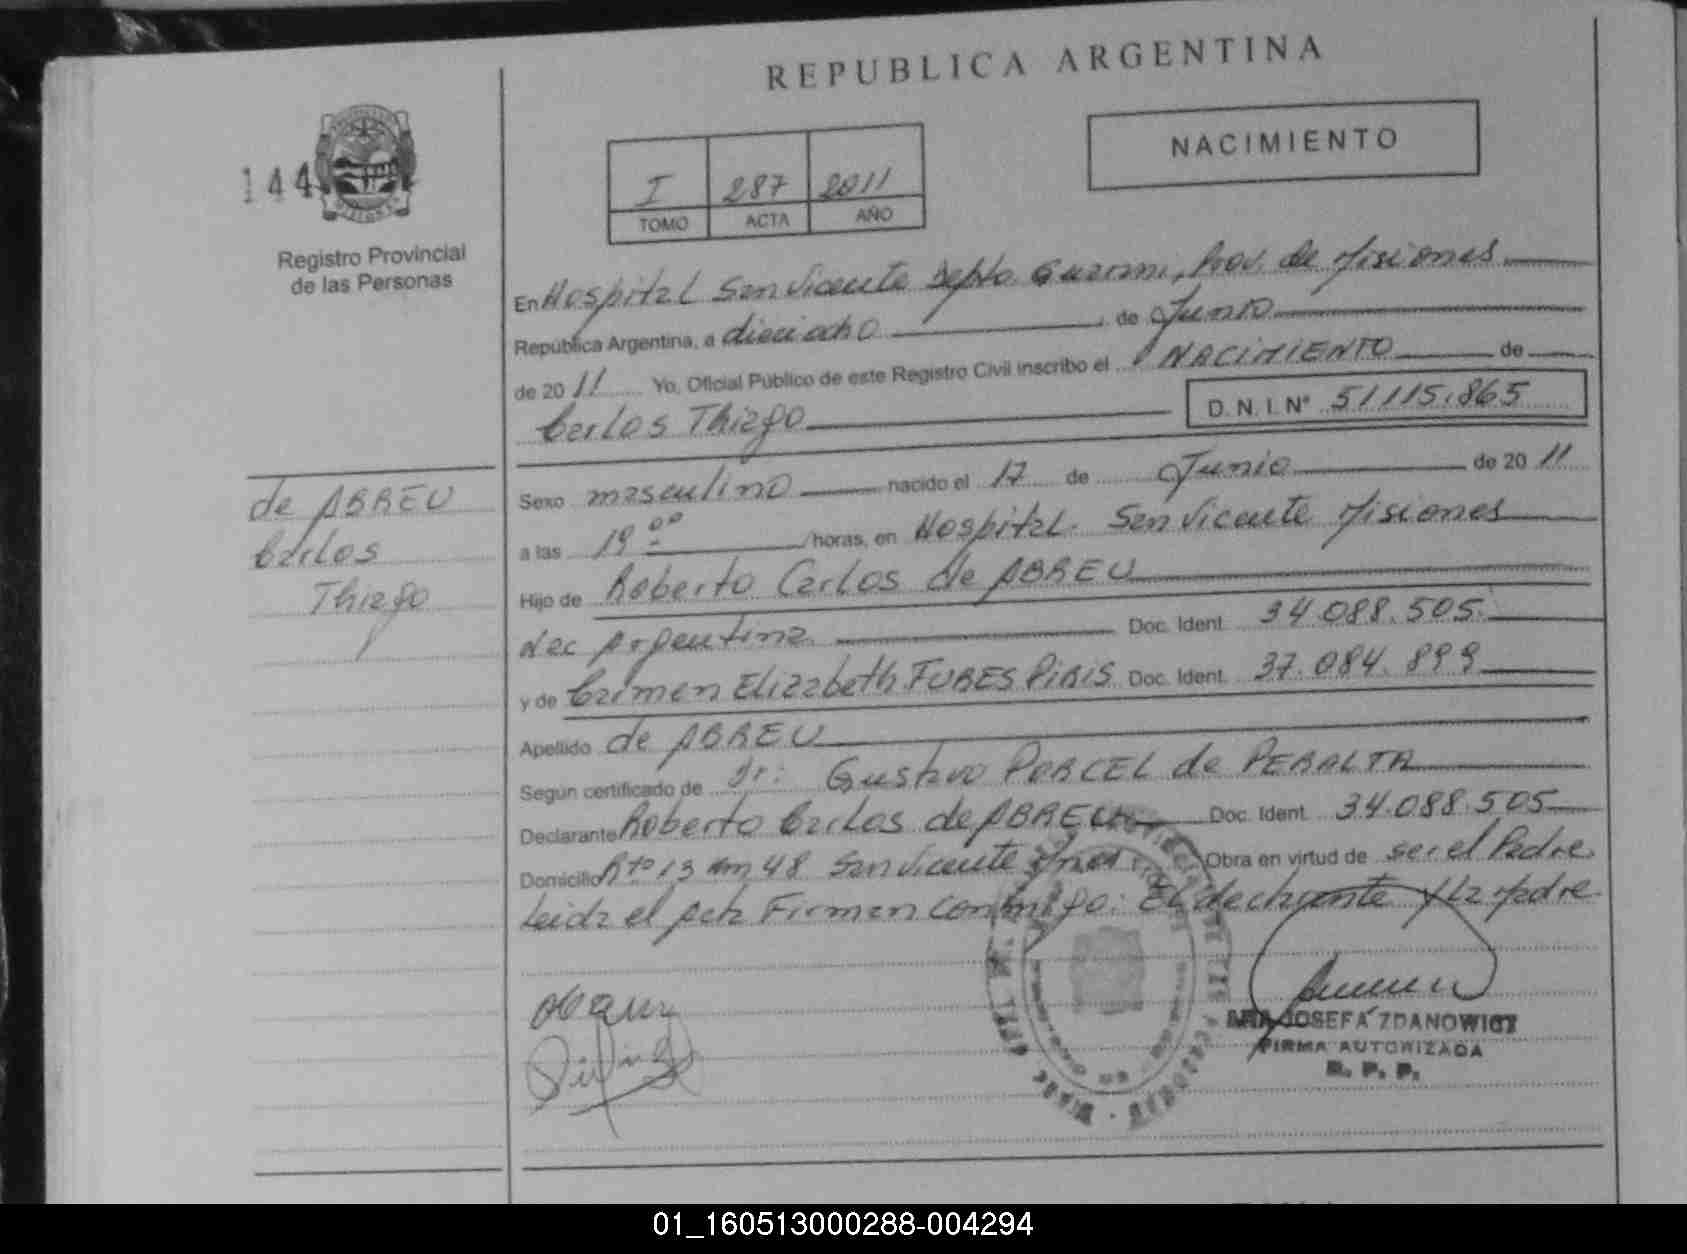 REPUBLICA ARGENTINA
NACIMIENTO
144
I 287 2011
TOMO ACTA AÑO
Registro Provincial
de las Personas
En Hospital San Vicente Depto. Guarani, Prov. de Misiones
República Argentina, a dieciocho, de Junio
de 2011 Yo, Oficial Público de este Registro Civil inscribo el NACIMIENTO de
Carlos Thiago D. N. I. Nº 51.115.865
de ABREU
Carlos
Thiago
Sexo masculino nacido el 17 de Junio de 2011
a las 19 00 /horas, en Hospital San Vicente Misiones
Hijo de Roberto Carlos de ABREU
Nac Argentina Doc. Ident. 34.088.505
y de Carmen Elizabeth FUBES PIRIS Doc. Ident. 37.084.899
Apellido de ABREU
Según certificado de Dr: Gustavo PORCEL de PERALTA
Declarante Roberto Carlos de ABREU Doc. Ident. 34.088.505
Domicilio Rta 13 km 48 San Vicente Mnes Obra en virtud de ser el Padre
Leida el Acta Firman conmigo: El declarante y La Madre
JOSEFA ZDANOWICZ
FIRMA AUTORIZADA
R. P. P.
01_160513000288-004294